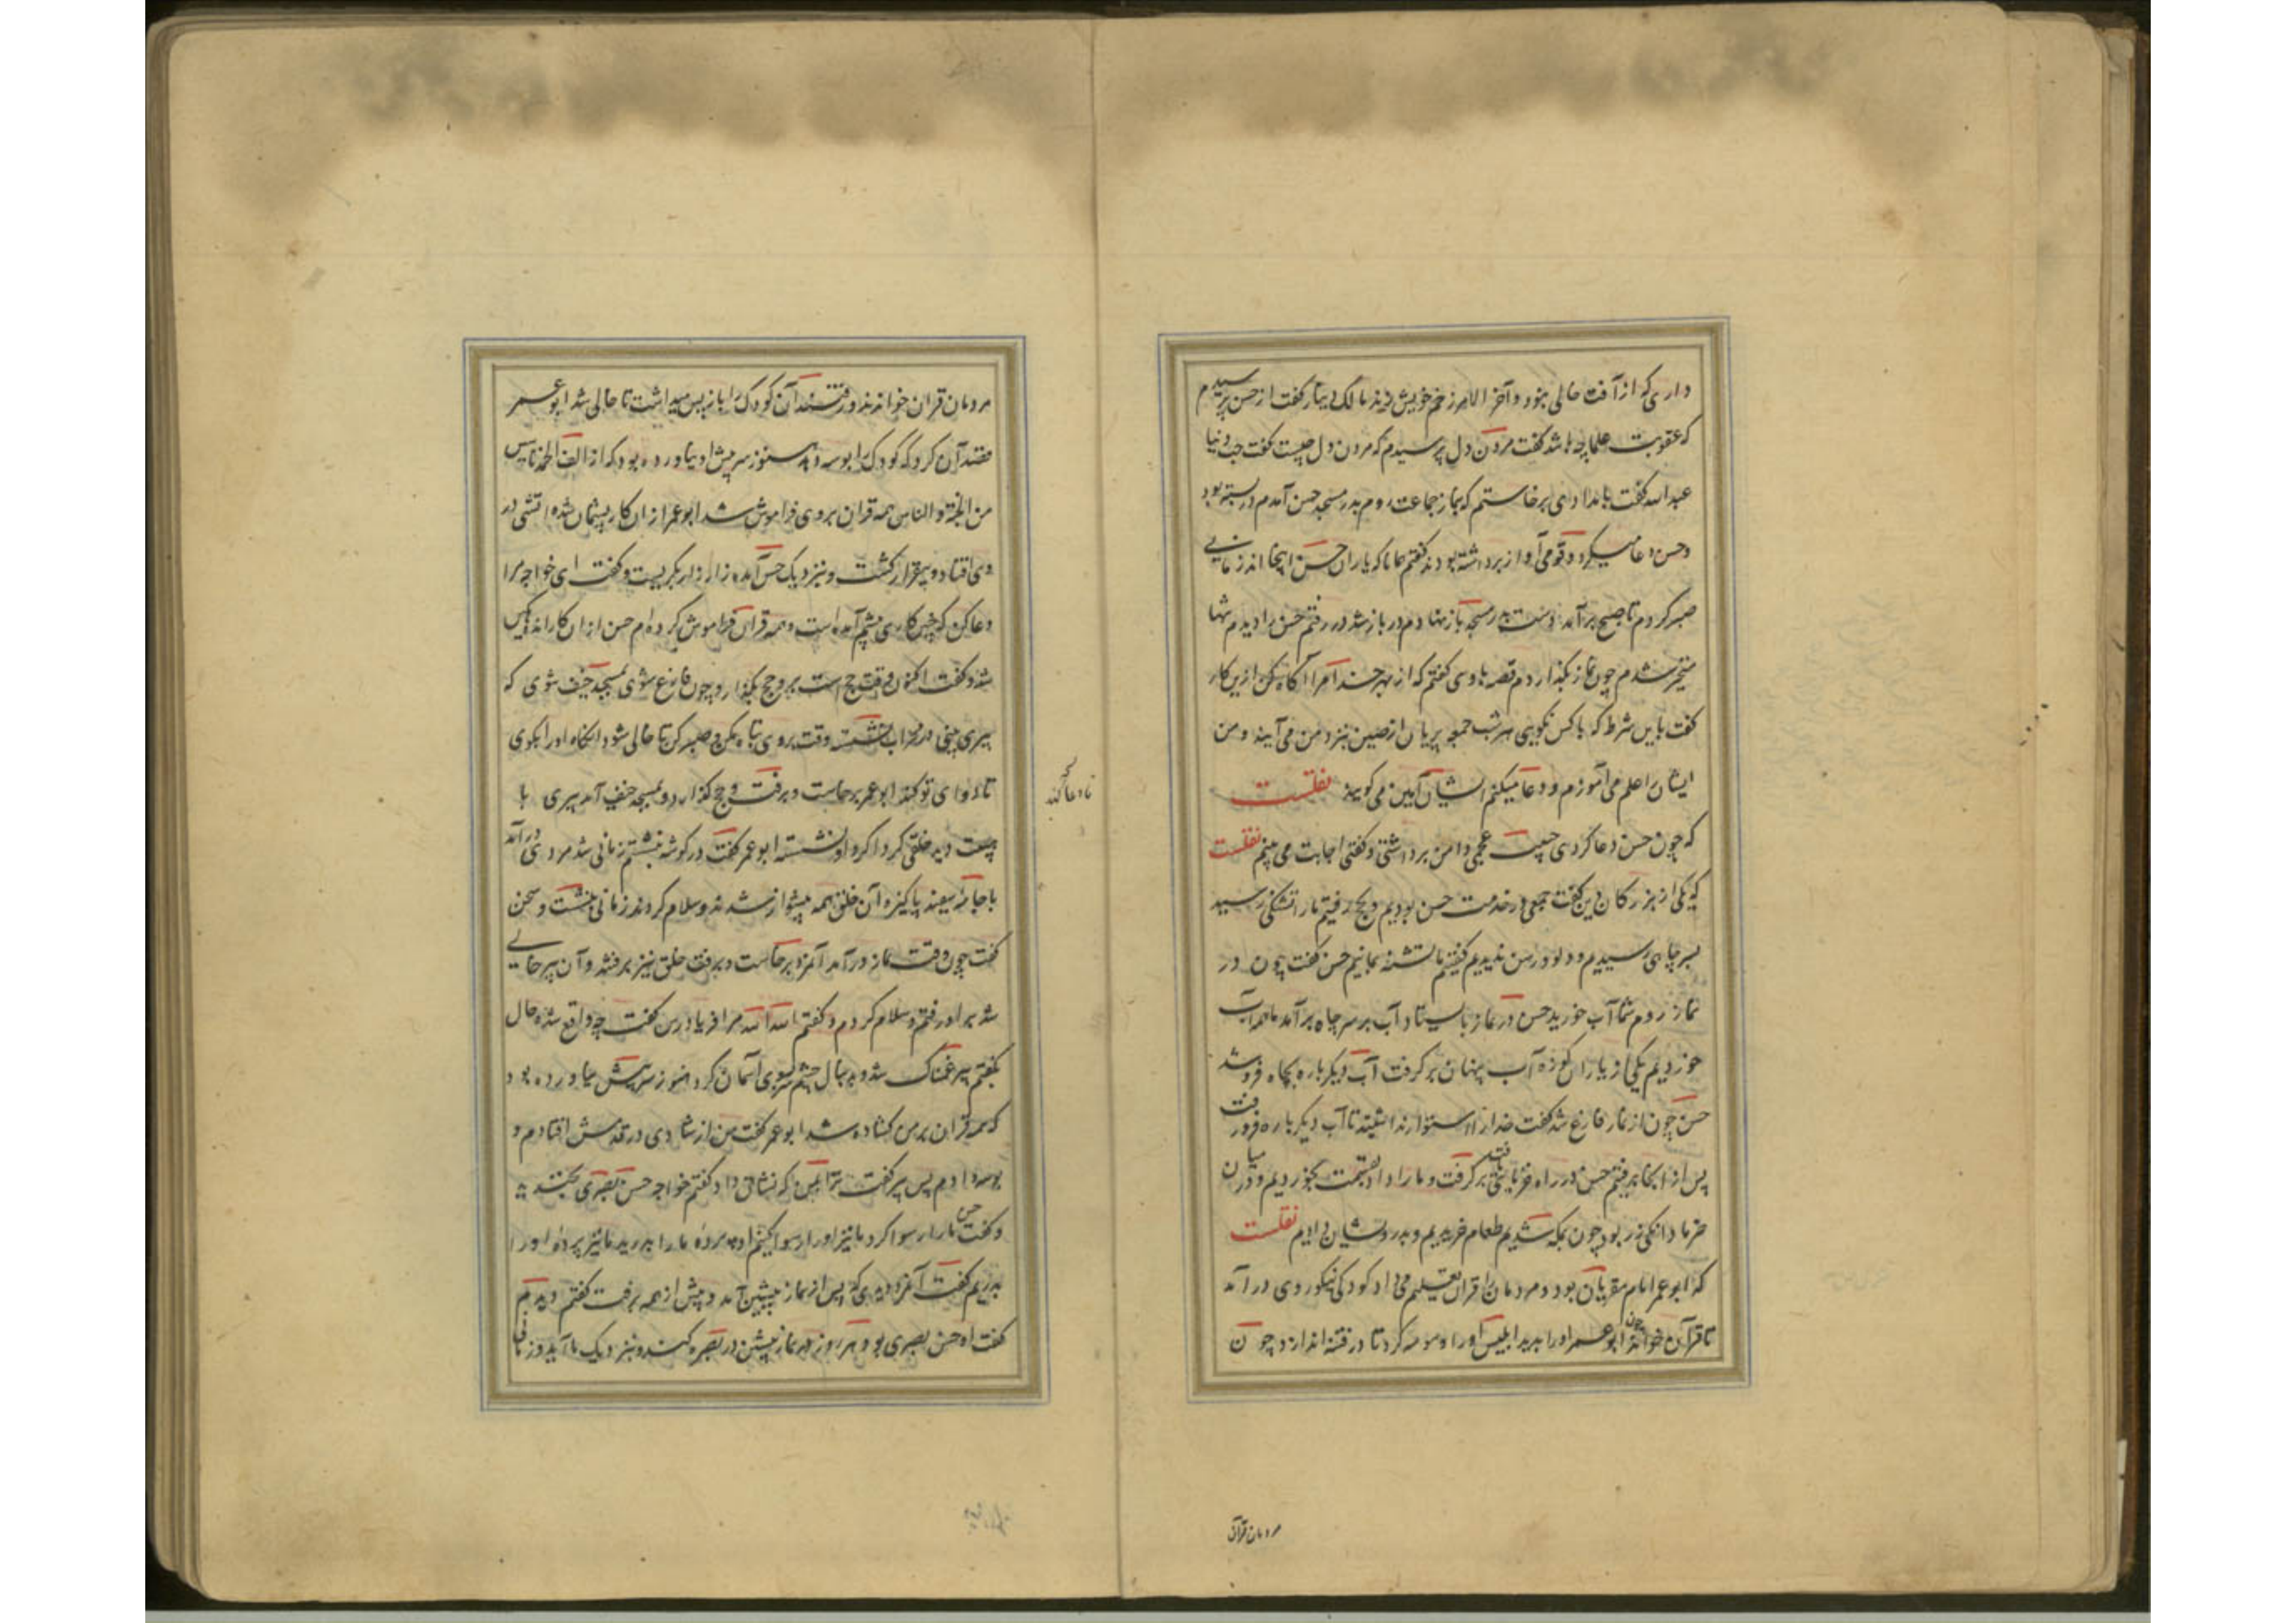 داری که از آفت خالی نبود و آخر الامر زخم خویش زند مالک دینار گفت از حسن پرسیدم
که عقوبت علما چه باشد گفت مردن دل پرسیدم که مردن دل چیست گفت حب دنیا
عبد الله گفت بامدادی برخاستم که بنماز جماعت روم بدر مسجد حسن آمدم در بسته بود
و حسن دعا میکرد و قومی آواز برداشته بودند گفتم همانا که یاران حسن اینجا اند زمانی
صبر کردم تا صبح برآمد دست بدر مسجد باز نهادم در باز شد در رفتم حسن را دیدم تنها
متحیر شدم چون نماز بگذاردم قصه با وی گفتم که از بهر خدا مرا آگاه کن ازین کار
گفت باین شرط که با کس نگویی هر شب جمعه پریان از نصیبین بنزد من می آیند و من
ایشان را علم می آموزم و دعا میکنم ایشان آمین می گویند نقلست
که چون حسن دعا کردی حبیب عجمی دامن برداشتی و گفتی اجابت می بینم نقلست
که یکی از بزرگان دین گفت جمعی در خدمت حسن بودیم و بحج رفتیم ما را تشنگی رسید
بسر چاهی رسیدیم و دلو و رسن ندیدیم گفتیم ما تشنه بمانیم حسن گفت چون در
نماز روم شما آب خورید حسن در نماز بایستاد آب بر سر چاه برآمد ما همه آب
خوردیم یکی از یاران کوزه آب پنهان بر گرفت آب دیگر باره بچاه فرو شد
حسن چون از نماز فارغ شد گفت خدای را استوار نداشتید تا آب دیگر باره فرو رفت
پس از آنجا برفتیم حسن در راه خرمایی یافت بر گرفت و ما را داد بخوردیم و در میان
خرما دانکی زر بود چون بمکه شدیم طعام خریدیم و بدرویشان دادیم نقلست
که ابو عمر امام مقریان بود و مردمان را قرآن تعلیم می داد کودکی نیکو روی در آمد
تا قرآن خواند چون ابو عمر اورا بدید ابلیس اورا وسوسه کرد تا در فتنه اندازد چون
مردمان قرآن
مردمان قران خواندند و رفتند آن کودک را باز پس میداشت تا خالی شد ابو عمر
قصد آن کرد که کودک را بوسه دهد هنوز سر پیش او نیاورده بود که از الف الحمد تا سین
من الجنة و الناس همه قران بر وی فراموش شد ابو عمر ازان کار پشیمان شد و آتشی در
وی افتاد و بیقرار گشت و بنزدیک حسن آمد و زار زار بگریست و گفت ای خواجه مرا
دعا کن که چنین کاری پیشم آمده است و همه قران فراموش کرده ام حسن ازان کار اندوهگین
شد و گفت اکنون وقت حج است برو حج بگذار و چون فارغ شوی بمسجد خیف شوی که
پیری بینی در محراب نشسته وقت بروی تباه مکن و صبر کن تا خالی شود آنگاه اورا بگوی
تا دعای تو کند ابو عمر برخاست و برفت و حج گذارد و بمسجد خیف آمد پیری با
تا دعا کند
هیبت دید خلقی گرد بر گرد او نشسته ابو عمر گفت در گوشه بنشستم زمانی شد مردی در آمد
با جامه سفید پاکیزه آن خلق همه پیشواز شدند و سلام کردند زمانی بنشست و سخن
گفت چون وقت نماز در آمد آن مرد برخاست و برفت خلق نیز برفتند و آن پیر خالی
شد بر او رفتم و سلام کردم و گفتم الله الله مرا فریاد رس گفت چه واقع شده حال
بگفتم پیر غمناک شد و بدنبال چشم سوی آسمان کرد هنوز سر پیش نیاورده بود
که همه قران بر من گشاده شد ابو عمر گفت من از شادی در قدمش افتادم و
بوسه دادم پس پیر گفت ترا بمن که نشانی داد گفتم خواجه حسن بصری بخندید
و گفت حسن ما را رسوا کرد ما نیز اورا رسوا کنیم او پرده ما را بدرید ما نیز پرده اورا
بدریم گفت آن مرد دیدی که پس از نماز پیشین آمد و پیش از همه برفت گفتم دیدم
گفت او حسن بصری بود هر روز نماز پیشین در بصره کند و بنزدیک ما آید و ز ما